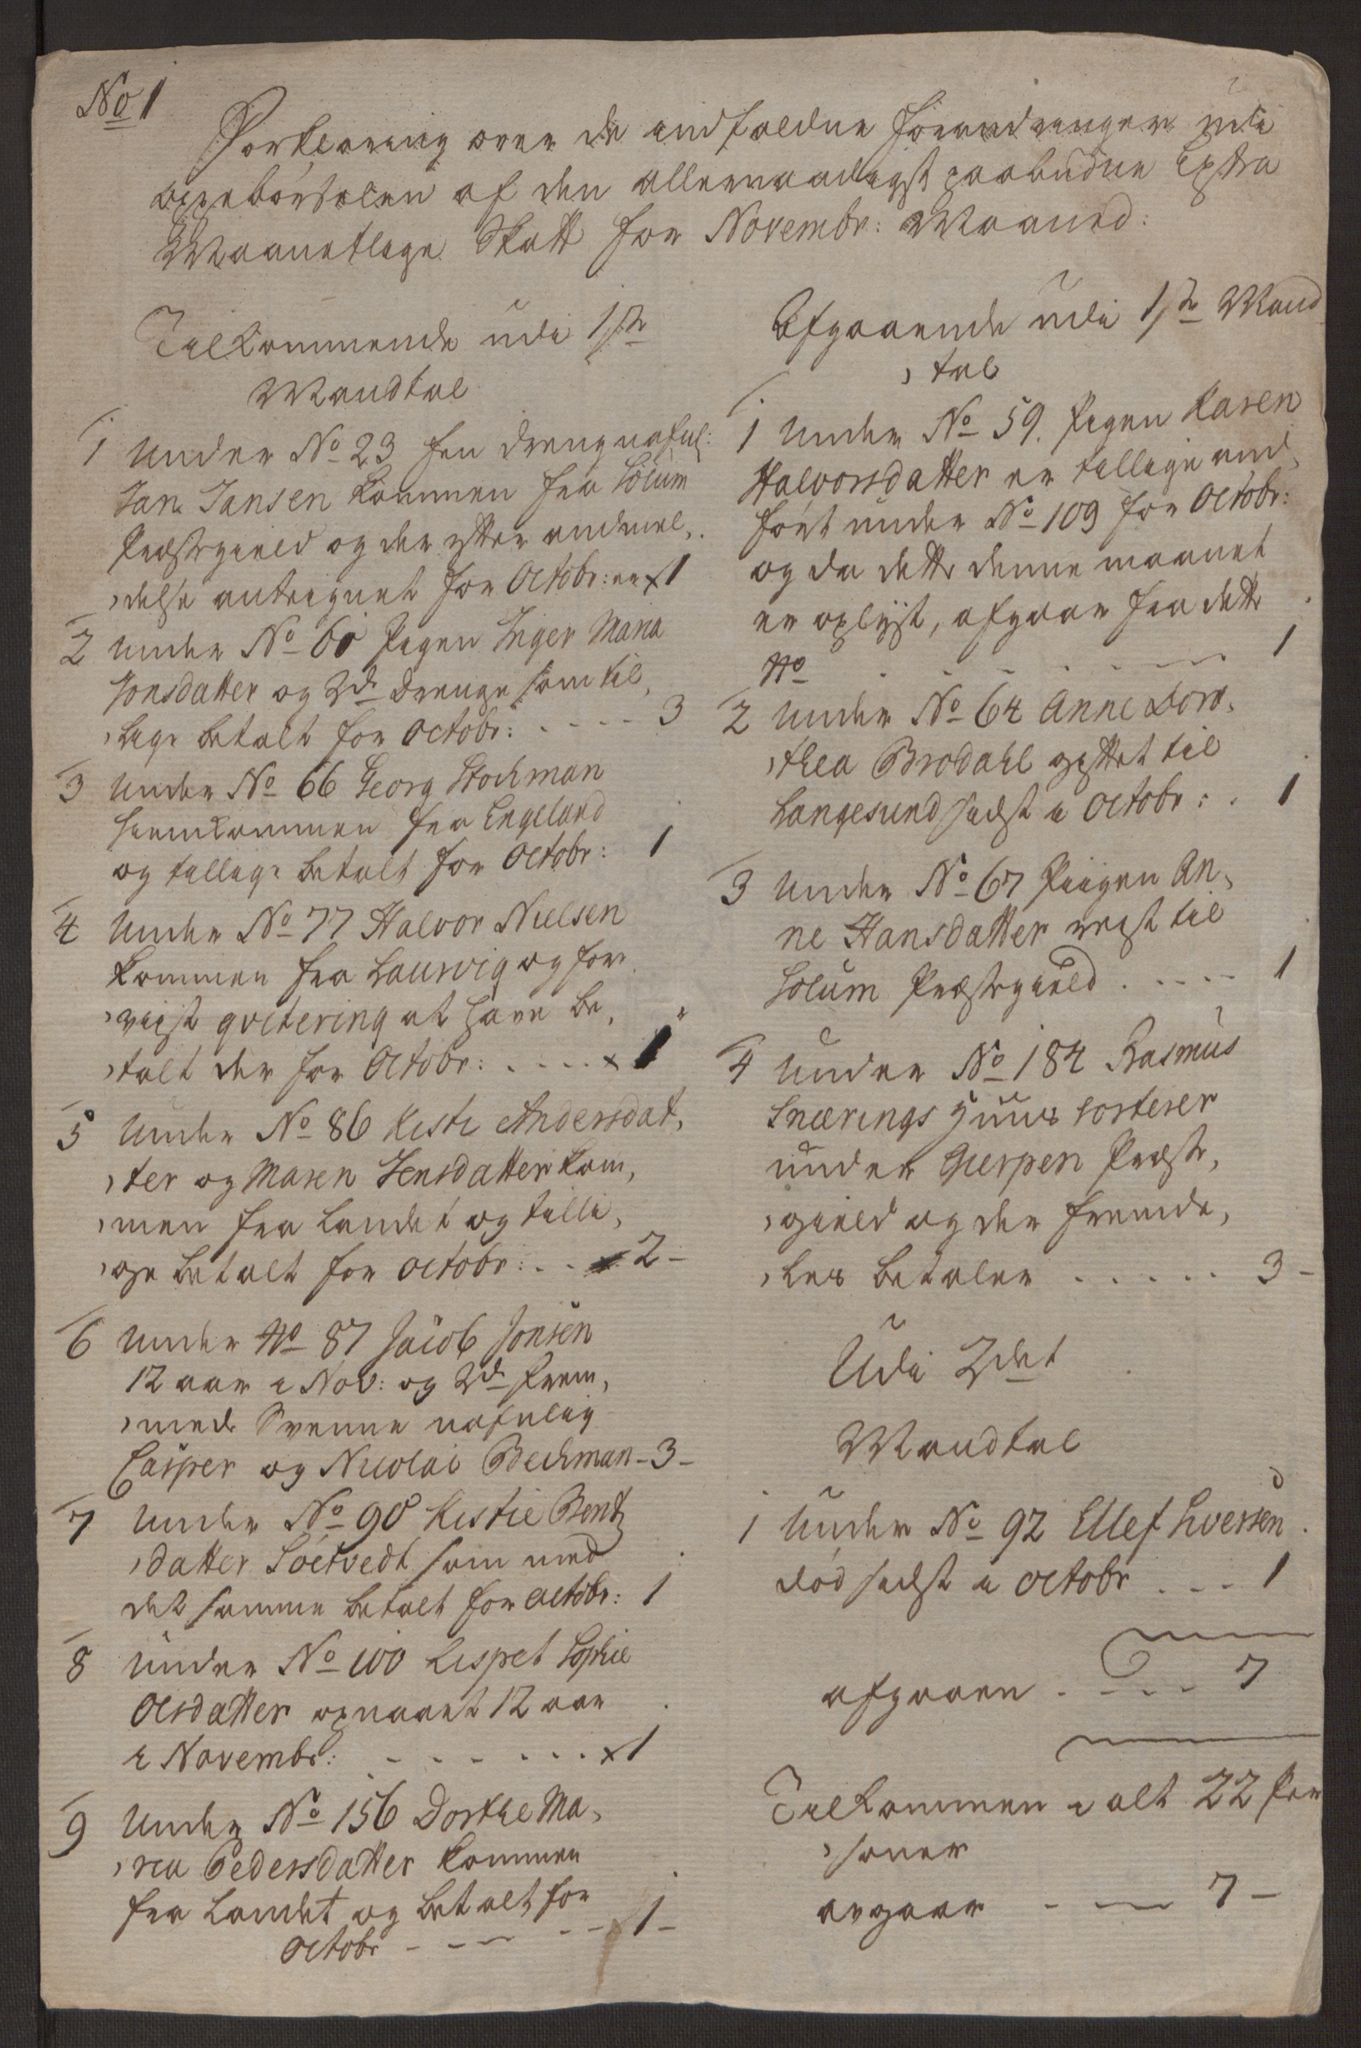 No 1
Forklaring over de indfaldne forandringer udi
oppebørselen af den allernaadigst paabudne Extra
Maanetlige Skatt for Novembr: Maaned:
Tilkommende udi 1ste
Mandtal
1 Under No 23 en dreng nafnl:
Jan Jansen kommen fra Solum
Præstegield og der efter anmel,
,delse antegnet for Octobr: er x 1
2 under No 60 Pigen Inger Maria
Jonsdatter og 2de drenge som til,
,lige betalt for Octobr: . - - - - 3
3 Under No 66 Georg Stockman
hiemkommen fra Engeland
og tillige betalt for Octobr: 1
4 Under No 77 Halvor Nielsen
kommen fra Laurvig og for
,viist qvitering at have be,
,talt der for Octobr: . . . . x 1
5 Under No 86 Kisti Andersdat,
,ter og Maren Jensdatter kom,
,men fra Landet og tilli,
,ge betalt for Octobr: . . 2 -
6 Under No 87 Jacob Jonsen
12 aar i Nov: og 2de frem,
,mede Svenne nafnlig
Casper og Nicolai Beckman - 3 -
7 Under No 90 Kistie Bentz
,datter Sóetvedt som med
det samme betalt for Octobr: 1
8 under No 100 Lispet Sophie
Olsdatter opnaaet 12 aar
i Novembr: - - - - . . . x 1
9 Under No 156 Dorthe Ma,
,ria Pedersdatter kommen
fra Landet og betalt for
Octobr - - - - - 1 -
Afgaaende udi 1ste Mand
,tal
1 Under No 59. Pigen Karen
Halvorsdatter er tillige an,
ført under No 109 for Octobr:
og da dette denne maanet
er oplyst, afgaar fra dette
No - - - - - 1
2 Under No 64 Anne Doro,
,thea Brodahl gifttet til
Langesund sidst i Octobr: . 1
3 Under No 67 Piigen An,
ne Hansdatter reist til
Solum Præstegield . - - - 1
4 Under No 184 Rasmus
Snærings Huus sorterer
under Gierpen Præste,
,gield og der fremde,
,les betaler . . . . . . 3 -
Udi 2det
Mandtal
1 Under No 92 Ellef Iversen
død sidst i Octobr . - - 1
afgaaen . - - - 7
Tilkommen i alt 22 Per
,soner
avgaar - - - 7 -